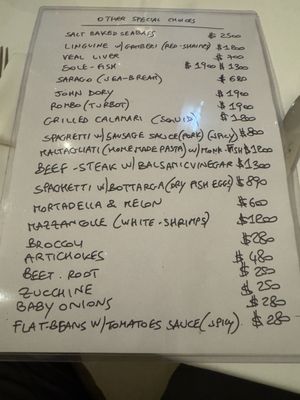 OTHER SPECIAL CHOICES
SALT BAKED SEABASS $ 2500
LINGUINE W/GAMBERI (RED-SHRIMPS) $1800
VEAL LIVER $ 700
SOLE-FISH $ 1900 $ 1300
SARAGO (SEA-BREAM) $ 680
JOHN DORY $ 1900
ROMBO (TURBOT) $ 1900
GRILLED CALAMARI (SQUID) $ 1800
SPAGHETTI W/SAUSAGE SAUCE (PORK) (SPICY) $800
MALTAGLIATI (HOMEMADE PASTA) W/MONK-FISH $1200
BEEF-STEAK W/BALSAMIC VINEGAR $1300
SPAGHETTI W/BOTTARGA (DRY FISH EGGS) $890
MORTADELLA & MELON $ 600
MAZZANCOLLE (WHITE-SHRIMPS) $1200
BROCCOLI $280
ARTICHOKES $ 480
BEET. ROOT $ 280
ZUCCHINE $ 250
BABY ONIONS $ 280
FLAT-BEANS W/TOMATOES SAUCE (SPICY) $ 280